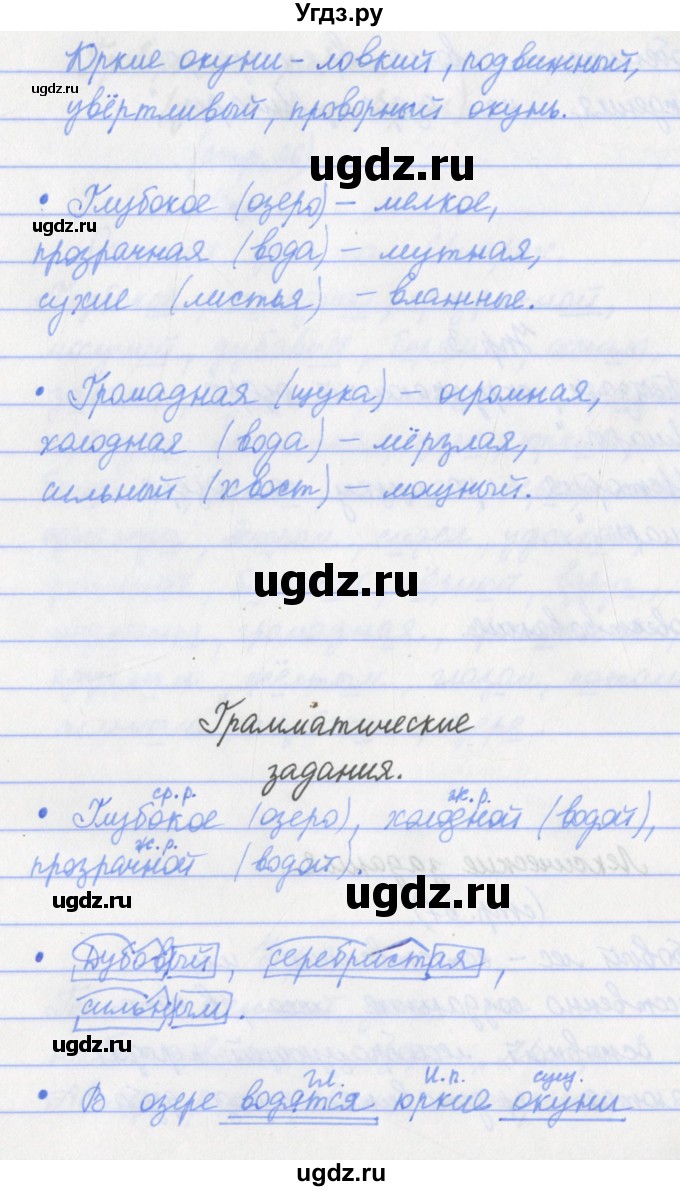 Угдз.ру
Юркие окуни – ловкий, подвижный,
увёртливый, проворный окунь.
ugdz.ru
• Глубокое (озеро) – мелкое,
ugdz.ru
прозрачная (вода) – мутная,
сухие (листья) – влажные.
• Громадная (щука) – огромная,
холодная (вода) – мёрзлая,
сильный (хвост) – мощный.
ugdz.ru
Грамматические
задания.
ср.р. ж.р.
• Глубокое (озеро), холодной (водой),
ж.р.
прозрачной (водой).
ugdz.ru ugdz.ru
• Дубовый, серебристая, –
сильным.
ugdz.ru
гл. И.п. сущ.
• В озере водятся юркие окуни
ugdz.ru